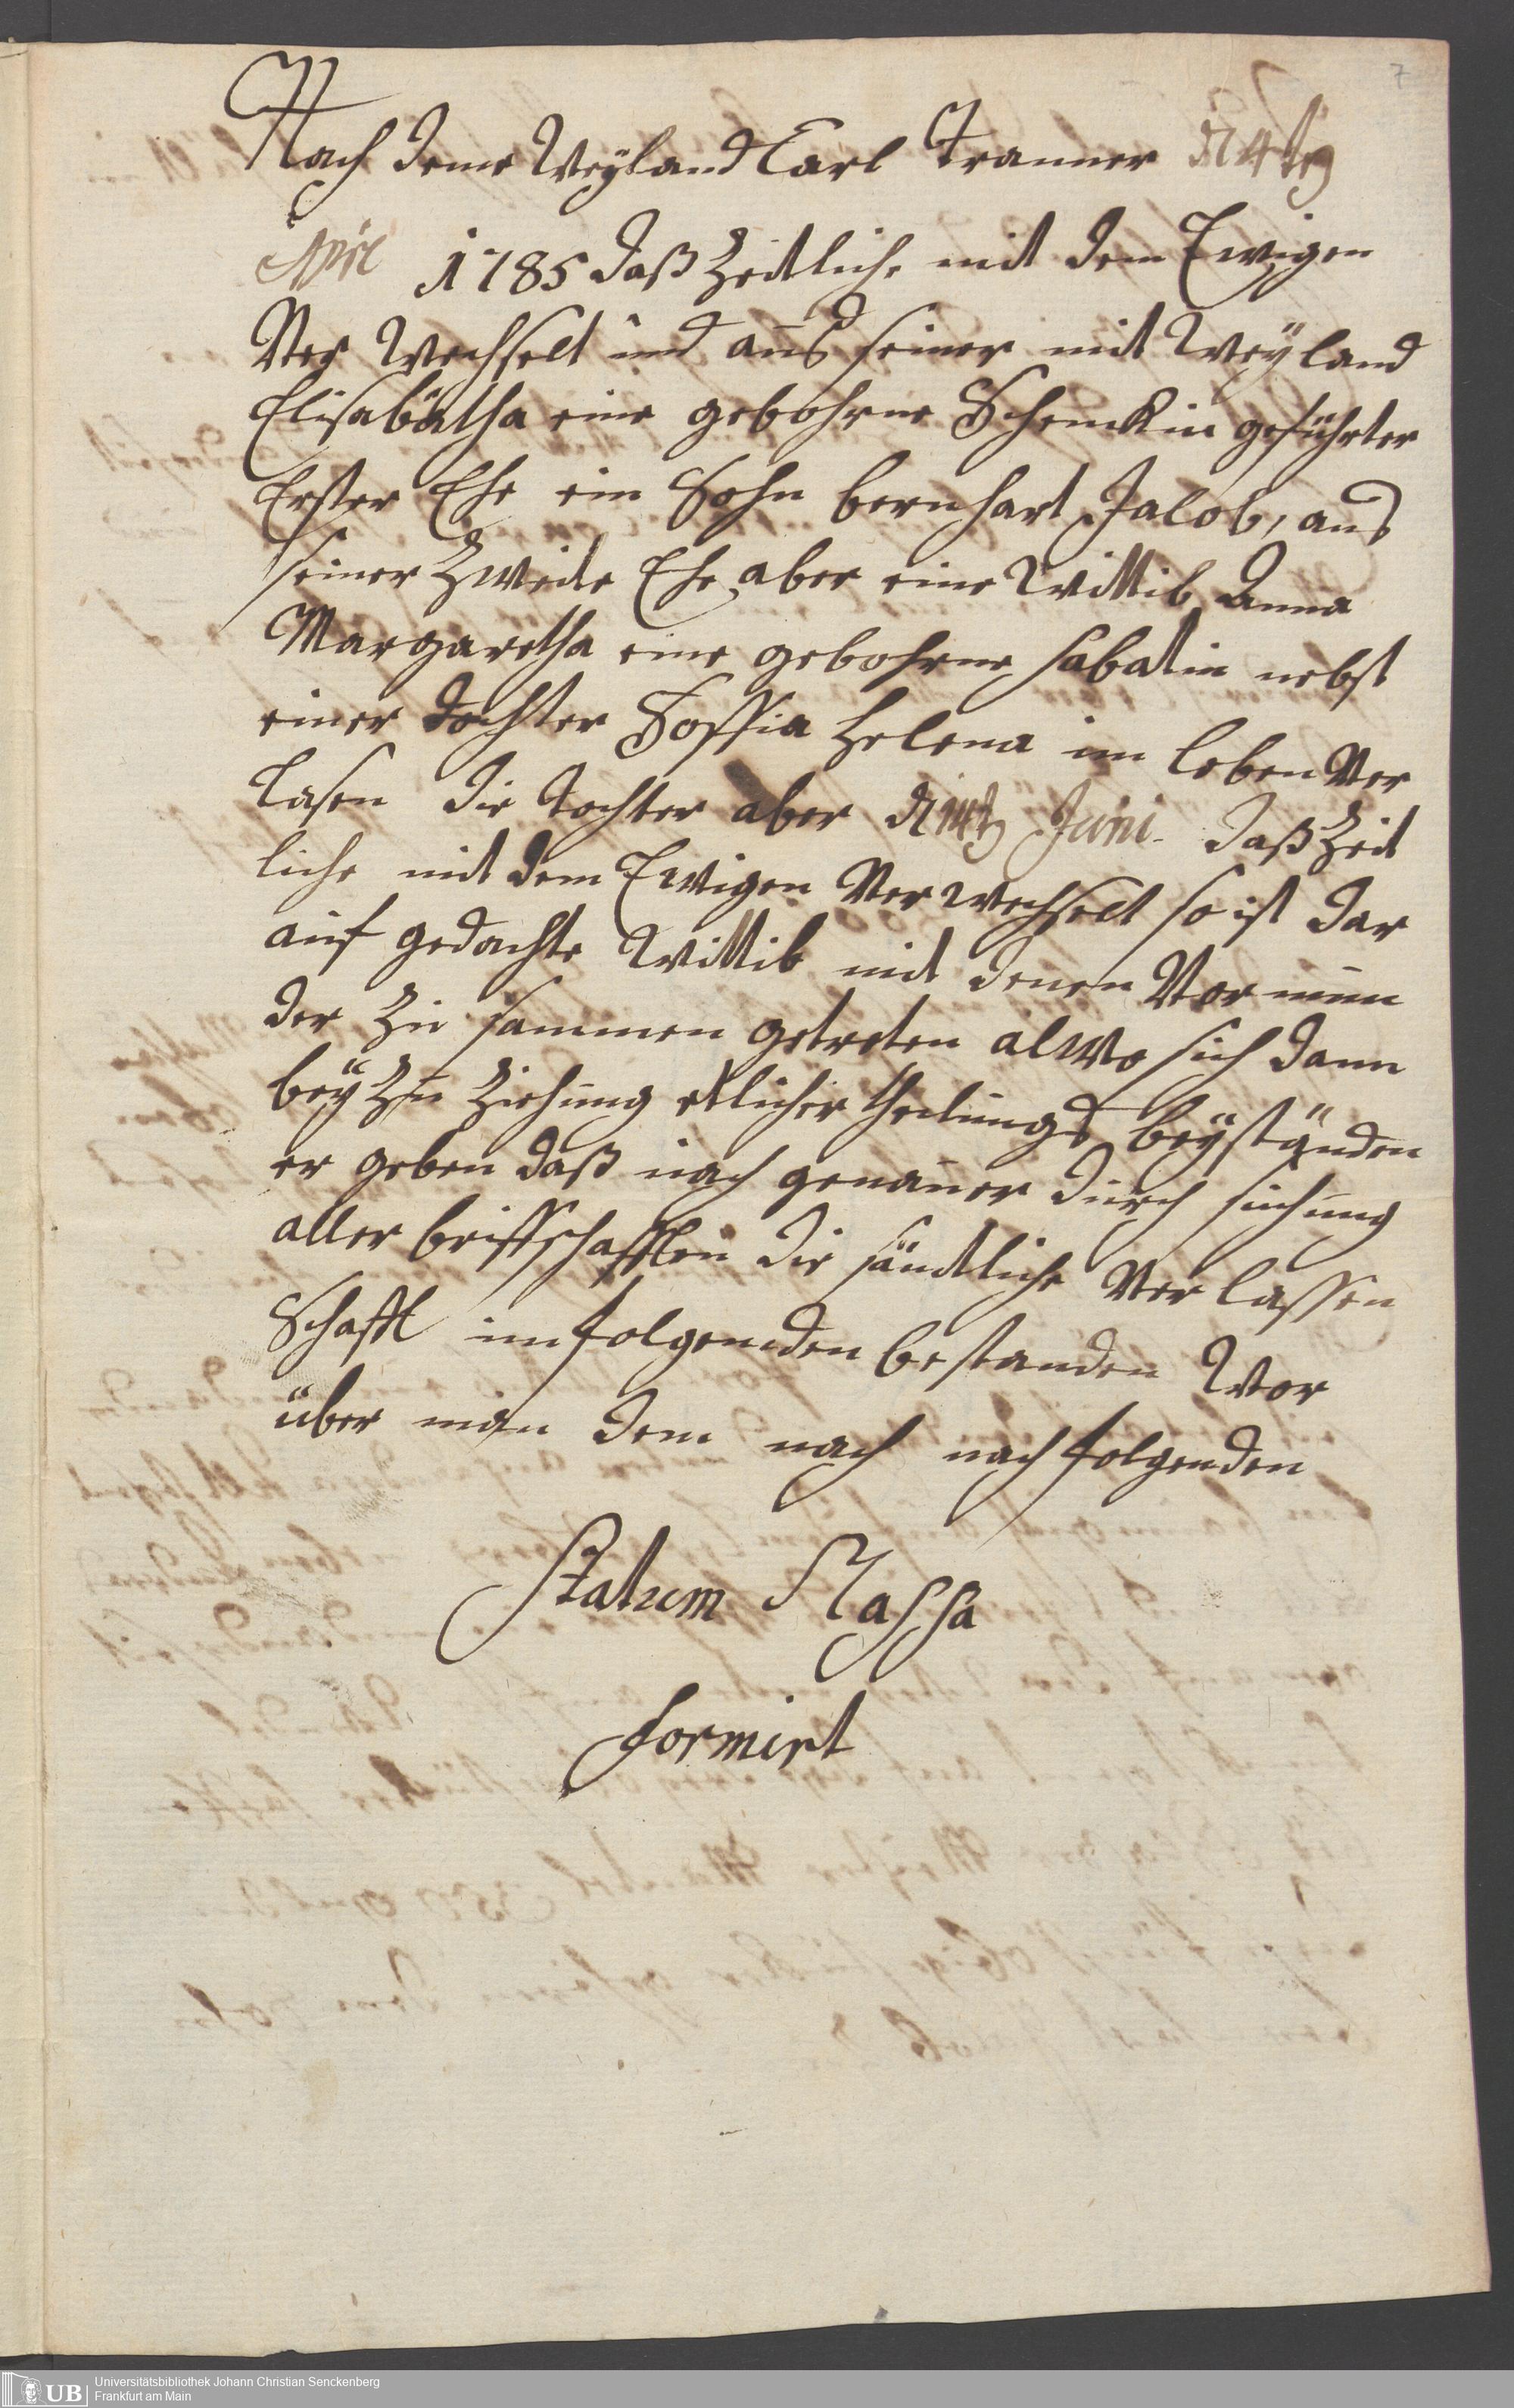 7
Nach deme Weyland Carl Tranner d 4 tg
Apri͞l 1785 daß Zeitliche mit dem Ewigen
Ver Wechselt und aus seiner mit Weyland
Elisabätha eine gebohrne Schenckin geführter
Erster Ehe ein Sohn bernhart Jacob, aus
seiner Zweite Ehe aber eine Wittib Anna
Margaretha eine gebohrne sabatin nebst
einer Dochter Soffia Helena im leben Ver
lasen die tochter aber d 14t Juni daß Zeit
liche mit dem Ewigen Ver wechselt so ist dar
auf gedachte Wittib mit denen Vor mün
der Zu sammen getreten alwo sich dann
bey Zu Ziehung etlicher theilungs beyständen
er geben daß nach genauer durch suchung
aller briffschafften die sämtliche Ver lassen
Schafft im folgenden bestanden Wor
über man dem nach nach folgenden
Statum Massa
formirt
UB Universitätsbibliothek Johann Christian Senckenberg
Frankfurt am Main